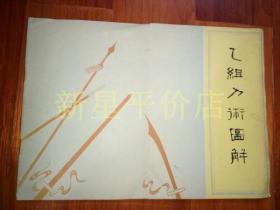 乙組刀術圖解
新星平价店